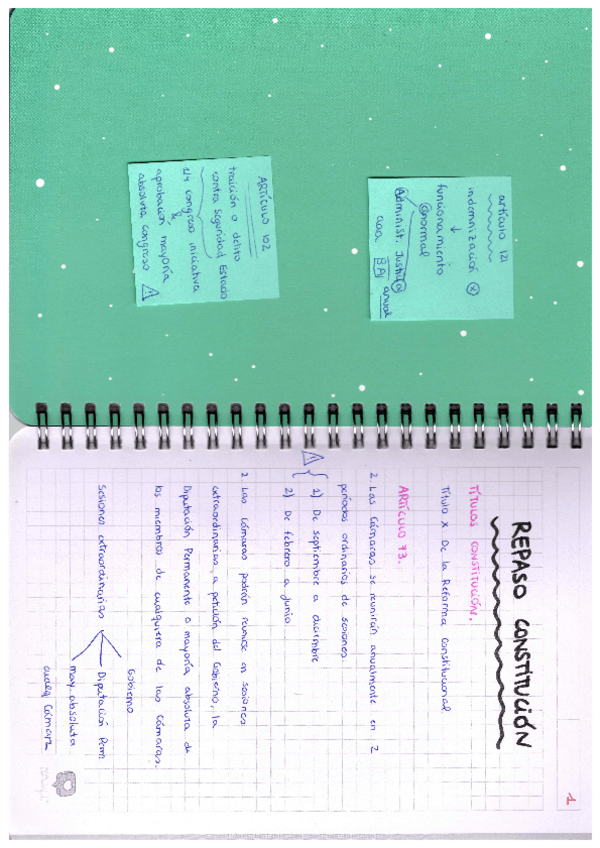 artículo 121
indemnización ⓧ
↓
funcionamiento
@normal
Administ. Justicia
caca BAJ anual
ARTÍCULO 102
traición o delito
contra Seguridad Estado
1/4 congreso iniciativa
&
aprobación mayoría
absoluta congreso ⚠
1
REPASO CONSTITUCIÓN
TÍTULOS CONSTITUCIÓN.
Título X De la Reforma constitucional
ARTÍCULO 73.
2 Las Cámaras se reunirán anualmente en 2
periodos ordinarios de sesiones
⚠ { 1) De septiembre a diciembre
2) De febrero a junio
2 Las Cámaras podrán reunirse en sesiones
extraordinarias, a petición del Gobierno, la
Diputación Permanente o mayoría absoluta de
los miembros de cualquiera de las Cámaras.
Gobierno
Sesiones extraordinarias Diputación Perm
may. absoluta
cualq Cámara